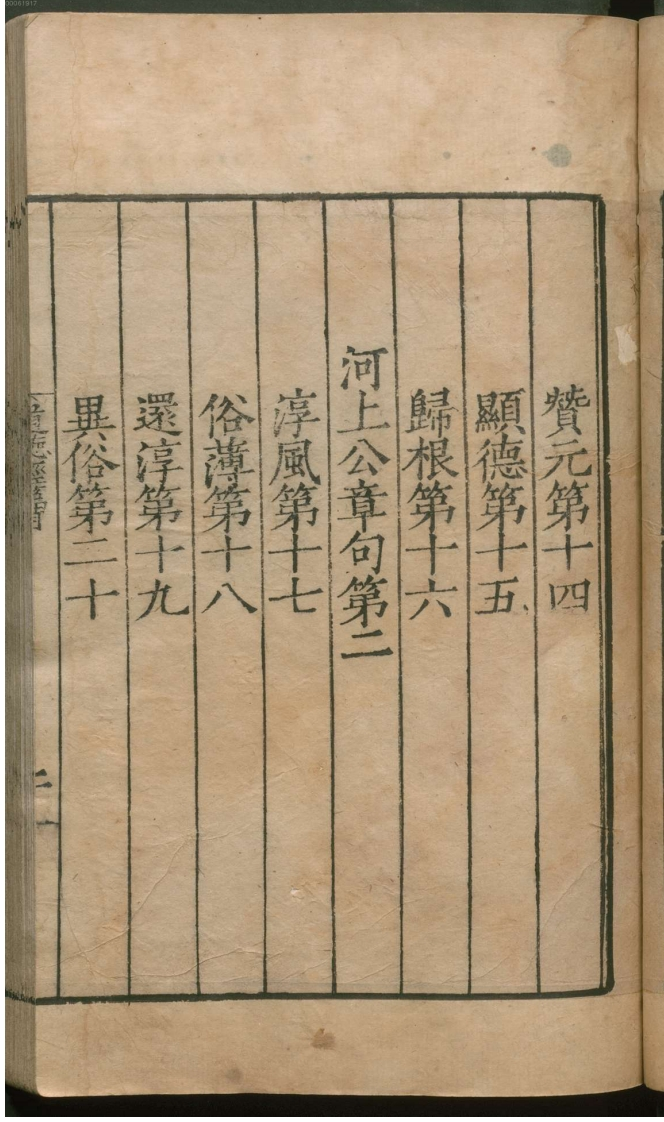 贊元第十四
顯德第十五
歸根第十六
河上公章句第二
淳風第十七
俗薄第十八
還淳第十九
異俗第二十
00061917